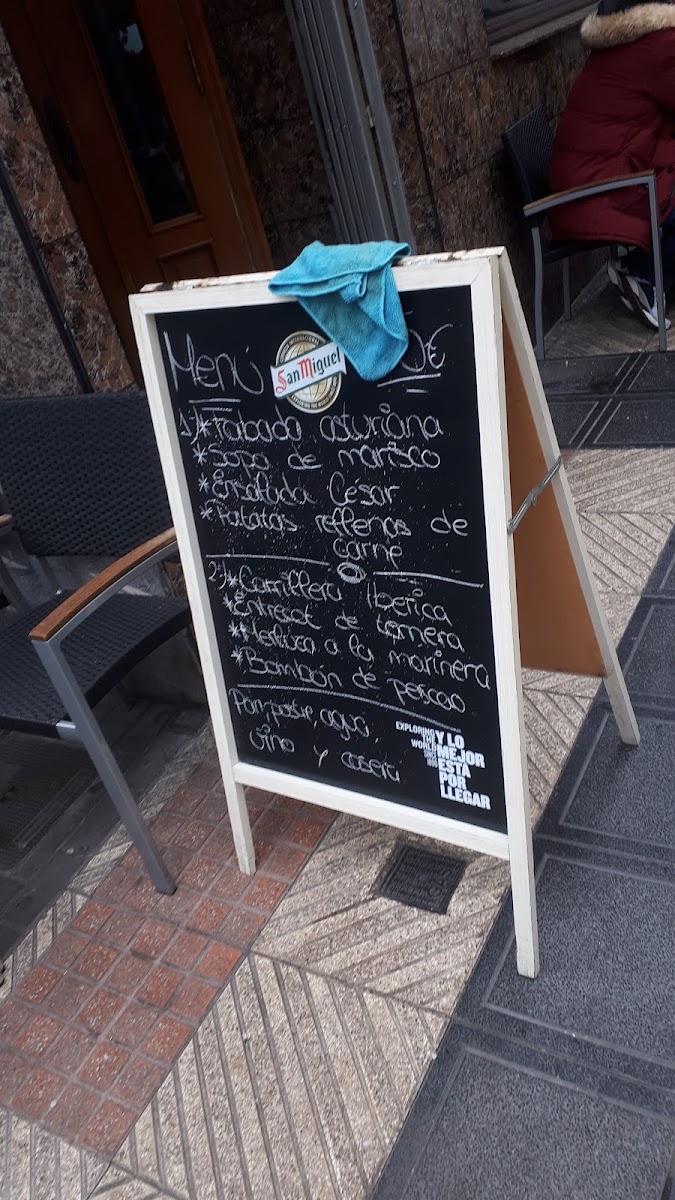 Menú
San Miguel
€
1) * Fabada asturiana
* Sopa de marisco
* Ensalada César
* Patatas rellenas de
carne
2) * Carrillera iberica
* Entrecot de ternera
* Merluza a la marinera
* Bombón de pescao
Pan, postre, agua,
vino y casera
EXPLORING
THE
WORLD
Y LO
MEJOR
ESTÁ
POR
LLEGAR